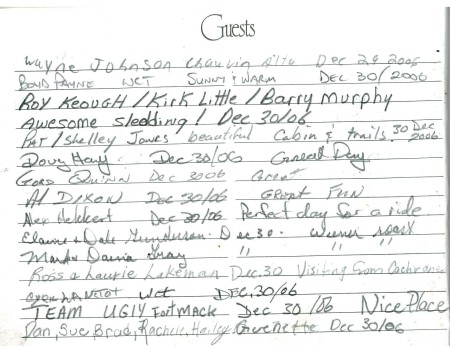 Guests
Wayne Johnson Chauvin Alta Dec 29 2006
BOND PAYNE WCT SUNNY & WARM DEC 30/2006
Roy Keough / Kirk Little / Barry Murphy
Awesome sledding! Dec 30/06
Pat / Shelley Jones beautiful Cabin & trails. 30 Dec 2006
Doug Hay Dec 30/06 Great Day
Gord Quinn Dec 30 06 Great
Al Dixon Dec 30/06 GREAT FUN
Alex Dec 30/06 Perfect day for a ride
Elaine & Dale Gunderson Dec 30. Wiener roast
Mark & Dawna Gray " " "
Ross & Laurie Lakeman Dec. 30 Visiting from Cochrane
WCT DEC, 30/06
TEAM UGLY Dec 30/06 Nice Place
Dan, Sue, Brad, Rachelle, Hailey, Dec 30/06